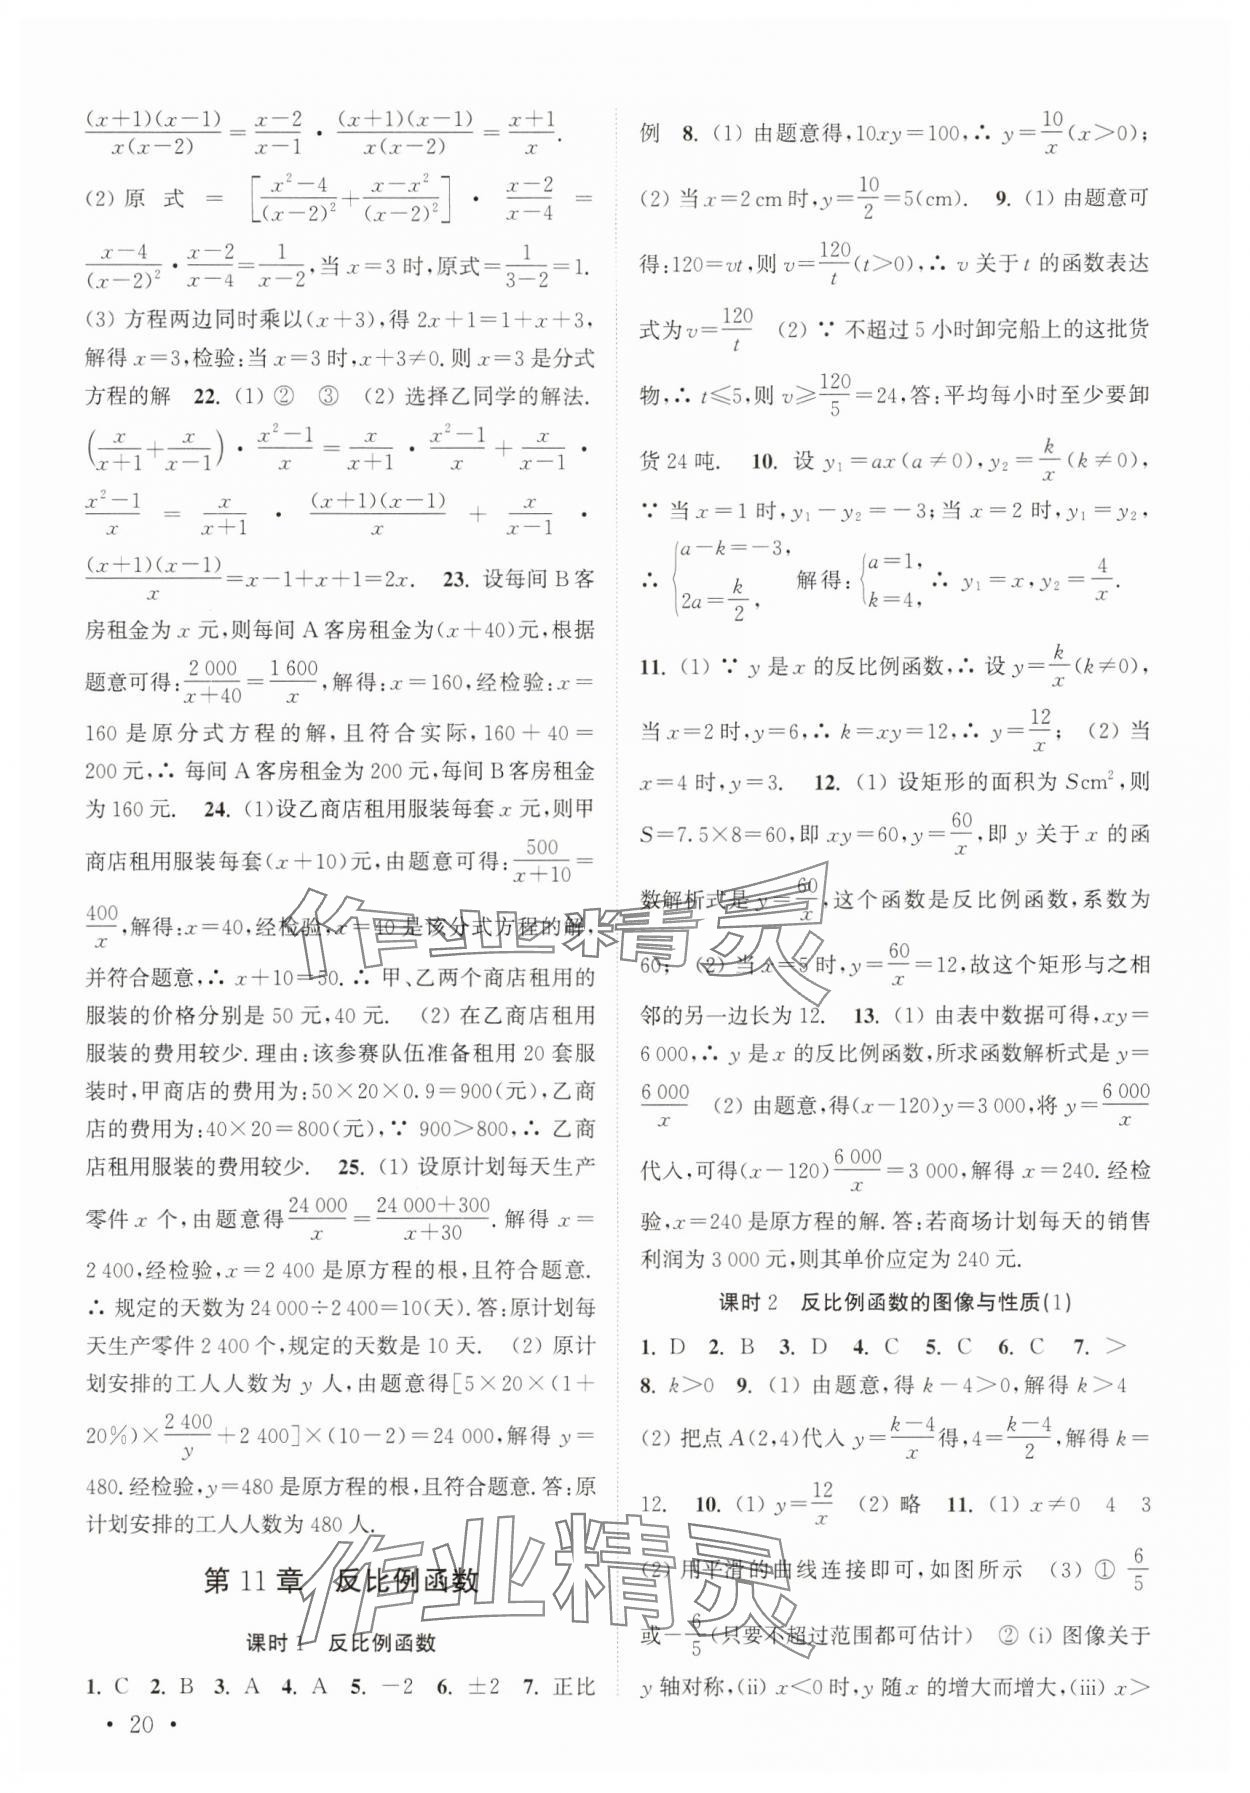 (x+1)(x−1)/x(x−2) = (x−2)/(x−1) • (x+1)(x−1)/x(x−2) = (x+1)/x.
(2) 原式 = [(x²−4)/(x−2)² + (x−x²)/(x−2)²] • (x−2)/(x−4) =
(x−4)/(x−2)² • (x−2)/(x−4) = 1/(x−2),当 x=3 时,原式=1/(3−2)=1.
(3) 方程两边同时乘以(x+3),得 2x+1=1+x+3,
解得 x=3,检验:当 x=3 时,x+3≠0. 则 x=3 是分式
方程的解 22. (1) ② ③ (2) 选择乙同学的解法.
(x/(x+1) + x/(x−1)) • (x²−1)/x = x/(x+1) • (x²−1)/x + x/(x−1) •
(x²−1)/x = x/(x+1) • (x+1)(x−1)/x + x/(x−1) •
(x+1)(x−1)/x = x−1+x+1=2x. 23. 设每间 B 客
房租金为 x 元,则每间 A 客房租金为(x+40)元,根据
题意可得: 2 000/(x+40) = 1 600/x,解得:x=160,经检验:x=
160 是原分式方程的解,且符合实际,160+40=
200 元,∴ 每间 A 客房租金为 200 元,每间 B 客房租金
为 160 元. 24. (1)设乙商店租用服装每套 x 元,则甲
商店租用服装每套(x+10)元,由题意可得: 500/(x+10) =
400/x,解得:x=40,经检验,x=40 是该分式方程的解,
并符合题意,∴ x+10=50. ∴ 甲、乙两个商店租用的
服装的价格分别是 50 元,40 元. (2) 在乙商店租用
服装的费用较少. 理由:该参赛队伍准备租用 20 套服
装时,甲商店的费用为:50×20×0.9=900(元),乙商
店的费用为:40×20=800(元),∵ 900>800,∴ 乙商
店租用服装的费用较少. 25. (1) 设原计划每天生产
零件 x 个,由题意得 24 000/x = (24 000+300)/(x+30). 解得 x=
2 400,经检验,x=2 400 是原方程的根,且符合题意.
∴ 规定的天数为 24 000÷2 400=10(天). 答:原计划每
天生产零件 2 400 个,规定的天数是 10 天. (2) 原计
划安排的工人人数为 y 人,由题意得[5×20×(1+
20%)× 2 400/y +2 400]×(10−2)=24 000,解得 y=
480. 经检验,y=480 是原方程的根,且符合题意. 答:原
计划安排的工人人数为 480 人.
第 11 章 反比例函数
课时 1 反比例函数
1. C 2. B 3. A 4. A 5. −2 6. ±2 7. 正比
• 20 •
例 8. (1) 由题意得,10xy=100,∴ y=10/x(x>0);
(2) 当 x=2 cm 时,y=10/2=5(cm). 9. (1) 由题意可
得:120=vt,则 v=120/t(t>0),∴ v 关于 t 的函数表达
式为 v=120/t (2) ∵ 不超过 5 小时卸完船上的这批货
物,∴ t≤5,则 v≥120/5=24,答:平均每小时至少要卸
货 24 吨. 10. 设 y₁=ax(a≠0),y₂=k/x(k≠0),
∵ 当 x=1 时,y₁−y₂=−3;当 x=2 时,y₁=y₂,
∴ {a−k=−3, 2a=k/2, 解得:{a=1, k=4, ∴ y₁=x,y₂=4/x.
11. (1) ∵ y 是 x 的反比例函数,∴ 设 y=k/x(k≠0),
当 x=2 时,y=6,∴ k=xy=12,∴ y=12/x; (2) 当
x=4 时,y=3. 12. (1) 设矩形的面积为 S cm²,则
S=7.5×8=60,即 xy=60,y=60/x,即 y 关于 x 的函
数解析式是 y=60/x,这个函数是反比例函数,系数为
60; (2) 当 x=5 时,y=60/x=12,故这个矩形与之相
邻的另一边长为 12. 13. (1) 由表中数据可得,xy=
6 000,∴ y 是 x 的反比例函数,所求函数解析式是 y=
6 000/x (2) 由题意,得(x−120)y=3 000,将 y=6 000/x
代入,可得(x−120) 6 000/x=3 000,解得 x=240. 经检
验,x=240 是原方程的解. 答:若商场计划每天的销售
利润为 3 000 元,则其单价应定为 240 元.
课时 2 反比例函数的图像与性质(1)
1. D 2. B 3. D 4. C 5. C 6. C 7. >
8. k>0 9. (1) 由题意,得 k−4>0,解得 k>4
(2) 把点 A(2,4)代入 y=(k−4)/x 得,4=(k−4)/2,解得 k=
12. 10. (1) y=12/x (2) 略 11. (1) x≠0 4 3
(2) 用平滑的曲线连接即可,如图所示 (3) ① 6/5
或−6/5(只要不超过范围都可估计) ② (i) 图像关于
y 轴对称,(ii) x<0 时,y 随 x 的增大而增大,(iii) x>
作业精灵
作业精灵